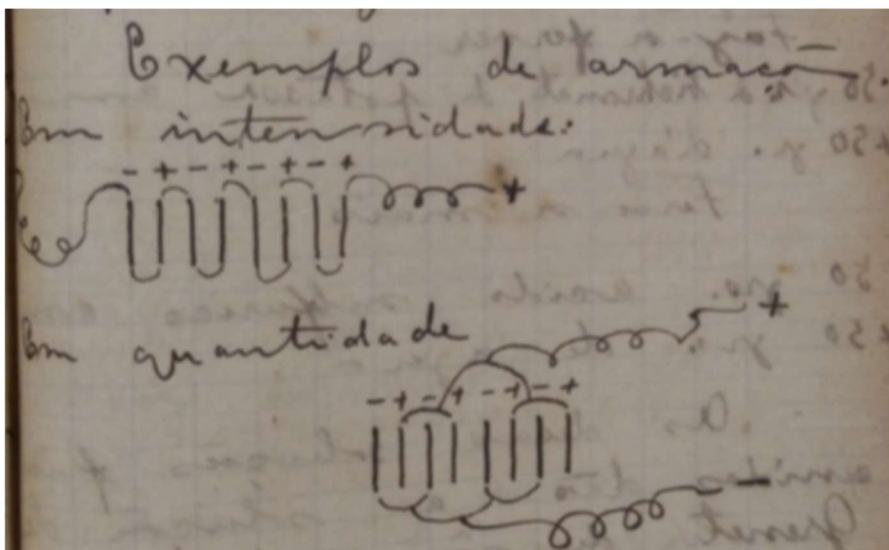 Exemplos de armação
Em intensidade:
- + - + - + - +
+
Em quantidade
+
- + - + - + - +
-